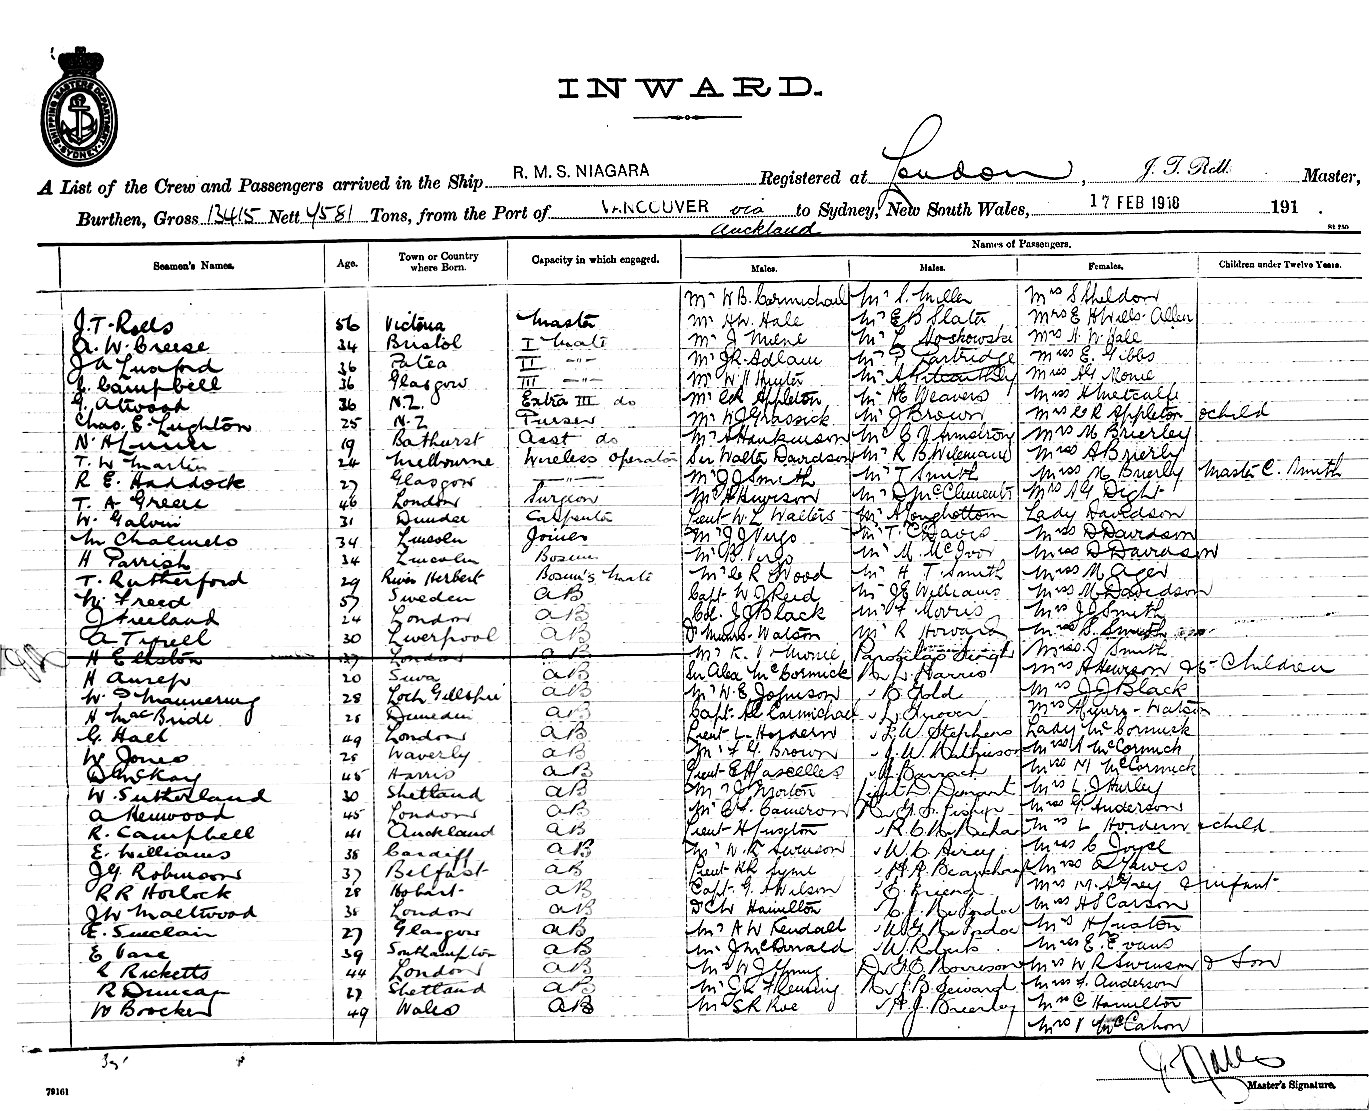 SHIPPING MASTERS DEPARTMENT SYDNEY
INWARD.
A List of the Crew and Passengers arrived in the Ship R. M. S. NIAGARA Registered at London, J. T. Rolls Master,
Burthen, Gross 13415 Nett 4581 Tons, from the Port of VANCOUVER via Auckland to Sydney, New South Wales, 17 FEB 1918 191 .
Seamen's Names. Age. Town or Country where Born. Capacity in which engaged. Names of Passengers.
Males. Males. Females. Children under Twelve Years.
Mr W B Carmichael Mr S. Miller Mrs S Sheldon
J. T. Rolls 56 Victoria Master Mr H W. Hale Mr E B Slater Mrs E H Wells-Allen
A. W. Creese 34 Bristol I Mate Mr J Milne Mr L Hoskowske Mrs H W Hale
J A Luxford 36 Patea II -"- Mr J R Adlam Mr P Partridge Miss E. Gibbs
J. Campbell 36 Glasgow III -"- Mr W H Hunter Mr A Miss A G Monie
G. Atwood 36 N.Z. Extra III do Mr C R Appleton Mr H E Weavers Miss H Metcalfe
Chas. E. Lighton 25 N.Z Purser Mr W J Grassick Mr J Brown Mrs C R Appleton & child
N. H 19 Bathurst Asst do Mr A Hankinson Mr C V Armstrong Mrs M Brierley
T. W Martin 24 Melbourne Wireless Operator Sir Walter Davidson Mr R B Wiseman Miss A Brierly
R E. Haddock 27 Glasgow -"- Mr J J Smith Mr T Smith Miss M Brierly Master C. Smith
T. A Greer 46 London Surgeon Mr A Hewson Mr D McClements Mrs A G Dight
W. Galvin 31 Dundee Carpenter Lieut W L Walters Mr A Longbottom Lady Davidson
M Chalmers 34 Lincoln Joiner Mr J J Virgo Mr T C Davis Miss D Davidson
H Parrish 34 Lincoln Bosun Mr B Virgo Mr M. McIvor Miss D Davidson
T. Rutherford 29 River Herbert Bosun's Mate Mr C R Wood Mr H T Smith Miss M Ager
W. Freed 57 Sweden AB Capt W J Reid Mr J E Williams Miss M Davidson
J Freeland 24 London AB Col. J J Black Mr F Morris Mrs J J Smith
A Tyrell 30 Liverpool AB D Munro-Watson Mr R Howard Miss B. Smith
H Elliston 37 London AB Mr K. V Monie Singh Miss J Smith
H 20 Suva AB Sir Alex McCormick L Harris Mrs A Hewson & 6 Children
W. P Mannering 28 Loch Gillshire AB Mr W. E Johnson B Gold Mrs J J Black
H MacBride 28 Dunedin AB Capt A C Carmichael Mrs Munro-Watson
G. Hall 49 London AB Lieut L. Hordern F W Stephens Lady McCormick
W Jones 28 Waverly AB Mr F G Brown J. W Miss A McCormick
D McKay 45 Harris AB Lieut E H Lascelles Miss M McCormick
W. Sutherland 30 Shetland AB Mr J Morton Mrs L. J Hurley
A Kenwood 45 London AB Mr E S. Cameron Miss G. Anderson
R. Campbell 41 Auckland AB Lieut H Huston Mrs L Hordern & child
E. Williams 38 Cardiff AB Mr W. R Swenson W. C Airey Miss C Joyce
J G Robinson 37 Belfast AB Lieut R R Syme Miss E Yawes
R R Horlock 28 Hobart AB Capt. G. A Wilson C. Friend Mrs M. A Grey & infant
J W Maltwood 38 London AB D C W Hamilton Miss A S Carson
E. Sinclair 27 Glasgow AB Mr A W Kendall Mrs H Huston
E Vare 39 Southampton AB Mr J McDonald W. Roberts Miss E. Evans
R Ricketts 44 London AB Mr W J Young D. G. E Morrison Mrs W R Swenson & Son
R Duncan 27 Shetland AB Mr J. R Fleming J B Seward Miss F. Anderson
W Broocker 49 Wales AB Mr S R Roe A J Brierley Mrs C Hamilton
Mrs V McCahon
J. T. Rolls
Master's Signature.
79161